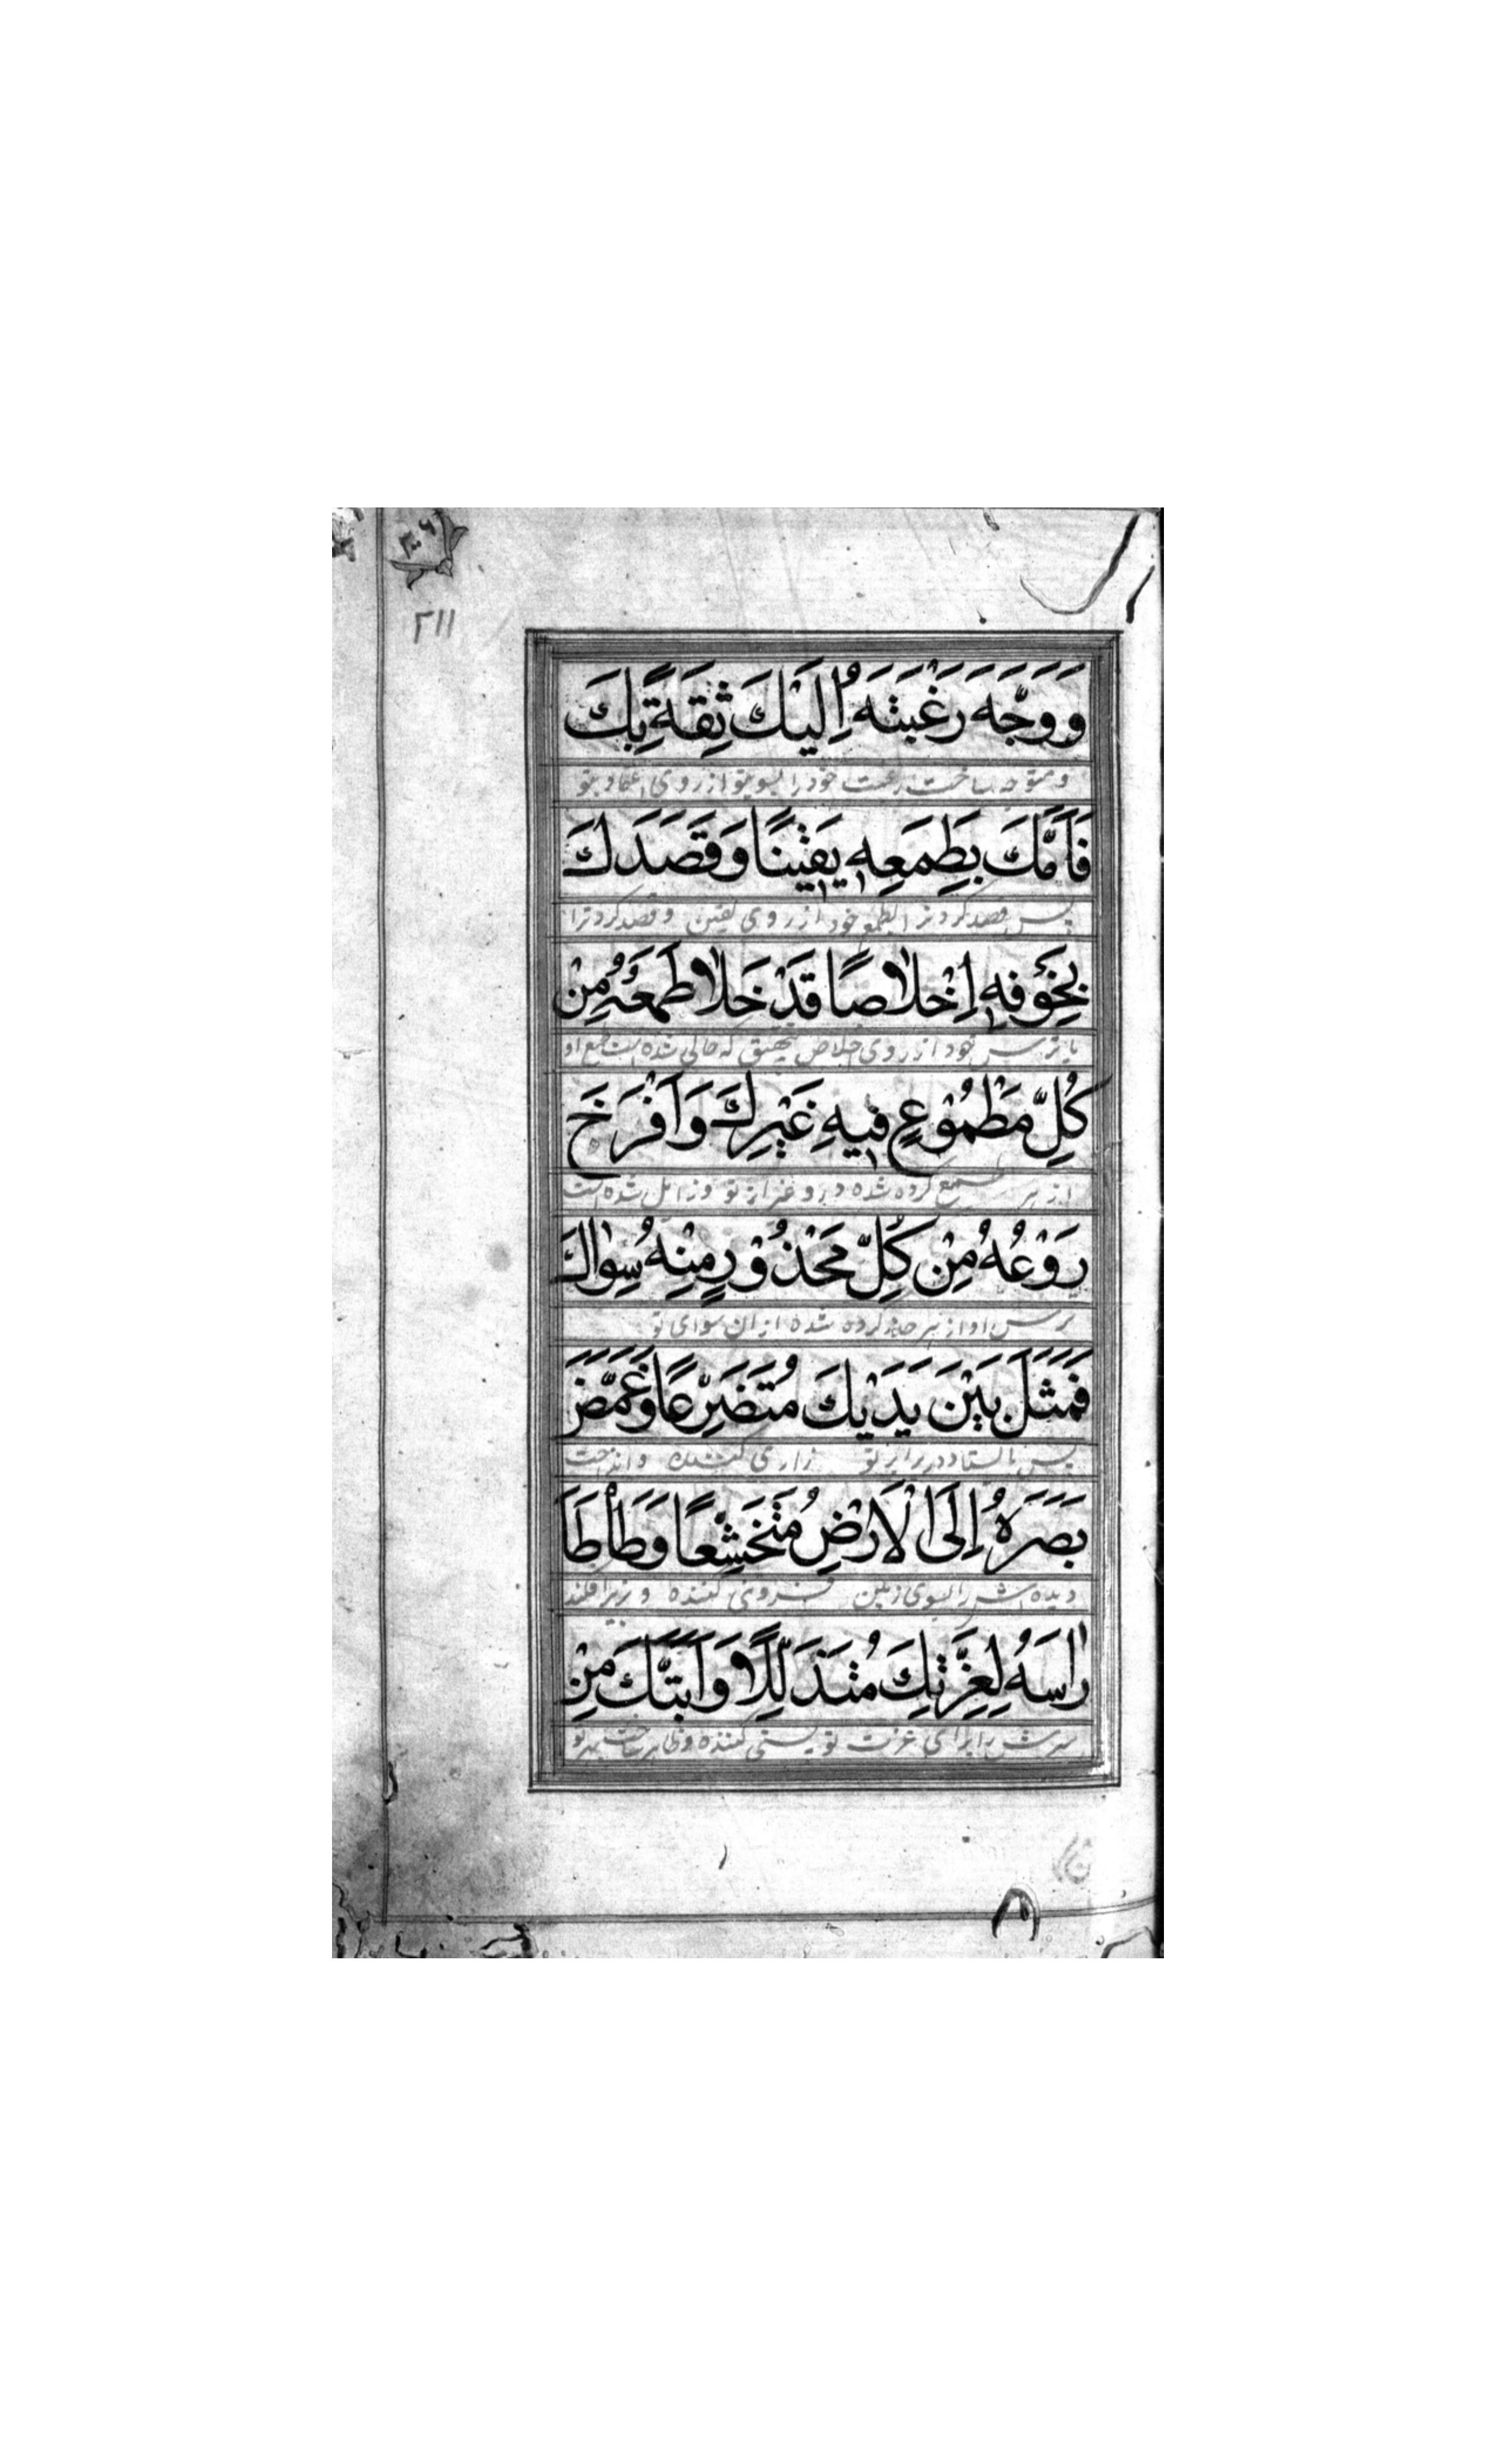 ٣٠٦
٢١١
وَوَجَّهَ رَغْبَتَهُ اِلَيْكَ ثِقَةً بِكَ
و متوجه ساخت رغبت خود را بسوی تو از روی اعتماد بتو
فَاَمَّكَ بِطَمَعِهٖ يَقِيْنًا وَقَصَدَكَ
پس قصد کرد ترا بطمع خود از روی یقین و قصد کرد ترا
بِخَوْفِهٖ اِخْلَاصًا قَدْ خَلَا طَمَعُهُ مِنْ
با ترس خود از روی اخلاص بتحقیق که خالی شده است طمع او
كُلِّ مَطْمُوْعٍ فِيهِ غَيْرِكَ وَاَفْرَخَ
از هر طمع کرده شده درو غیر از تو و زایل شده است
رَوْعُهُ مِنْ كُلِّ مَحْذُوْرٍ مِنْهُ سِوَاكَ
ترس او از هر حذر کرده شده از ان سوای تو
فَمَثَلَ بَيْنَ يَدَيْكَ مُتَضَرِّعًا وَغَمَّضَ
پس بایستاد در برابر تو زاری کننده و انداخت
بَصَرَهُ اِلَى الْاَرْضِ مُتَخَشِّعًا وَطَأْطَأَ
دیده اش را بسوی زمین فروتنی کننده و زیر افکند
رَاسَهُ لِعِزَّتِكَ مُتَذَلِّلًا وَاَبَثَّكَ مِنْ
سرش را برای عزت تو پستی کننده و ظاهر ساخت بر تو